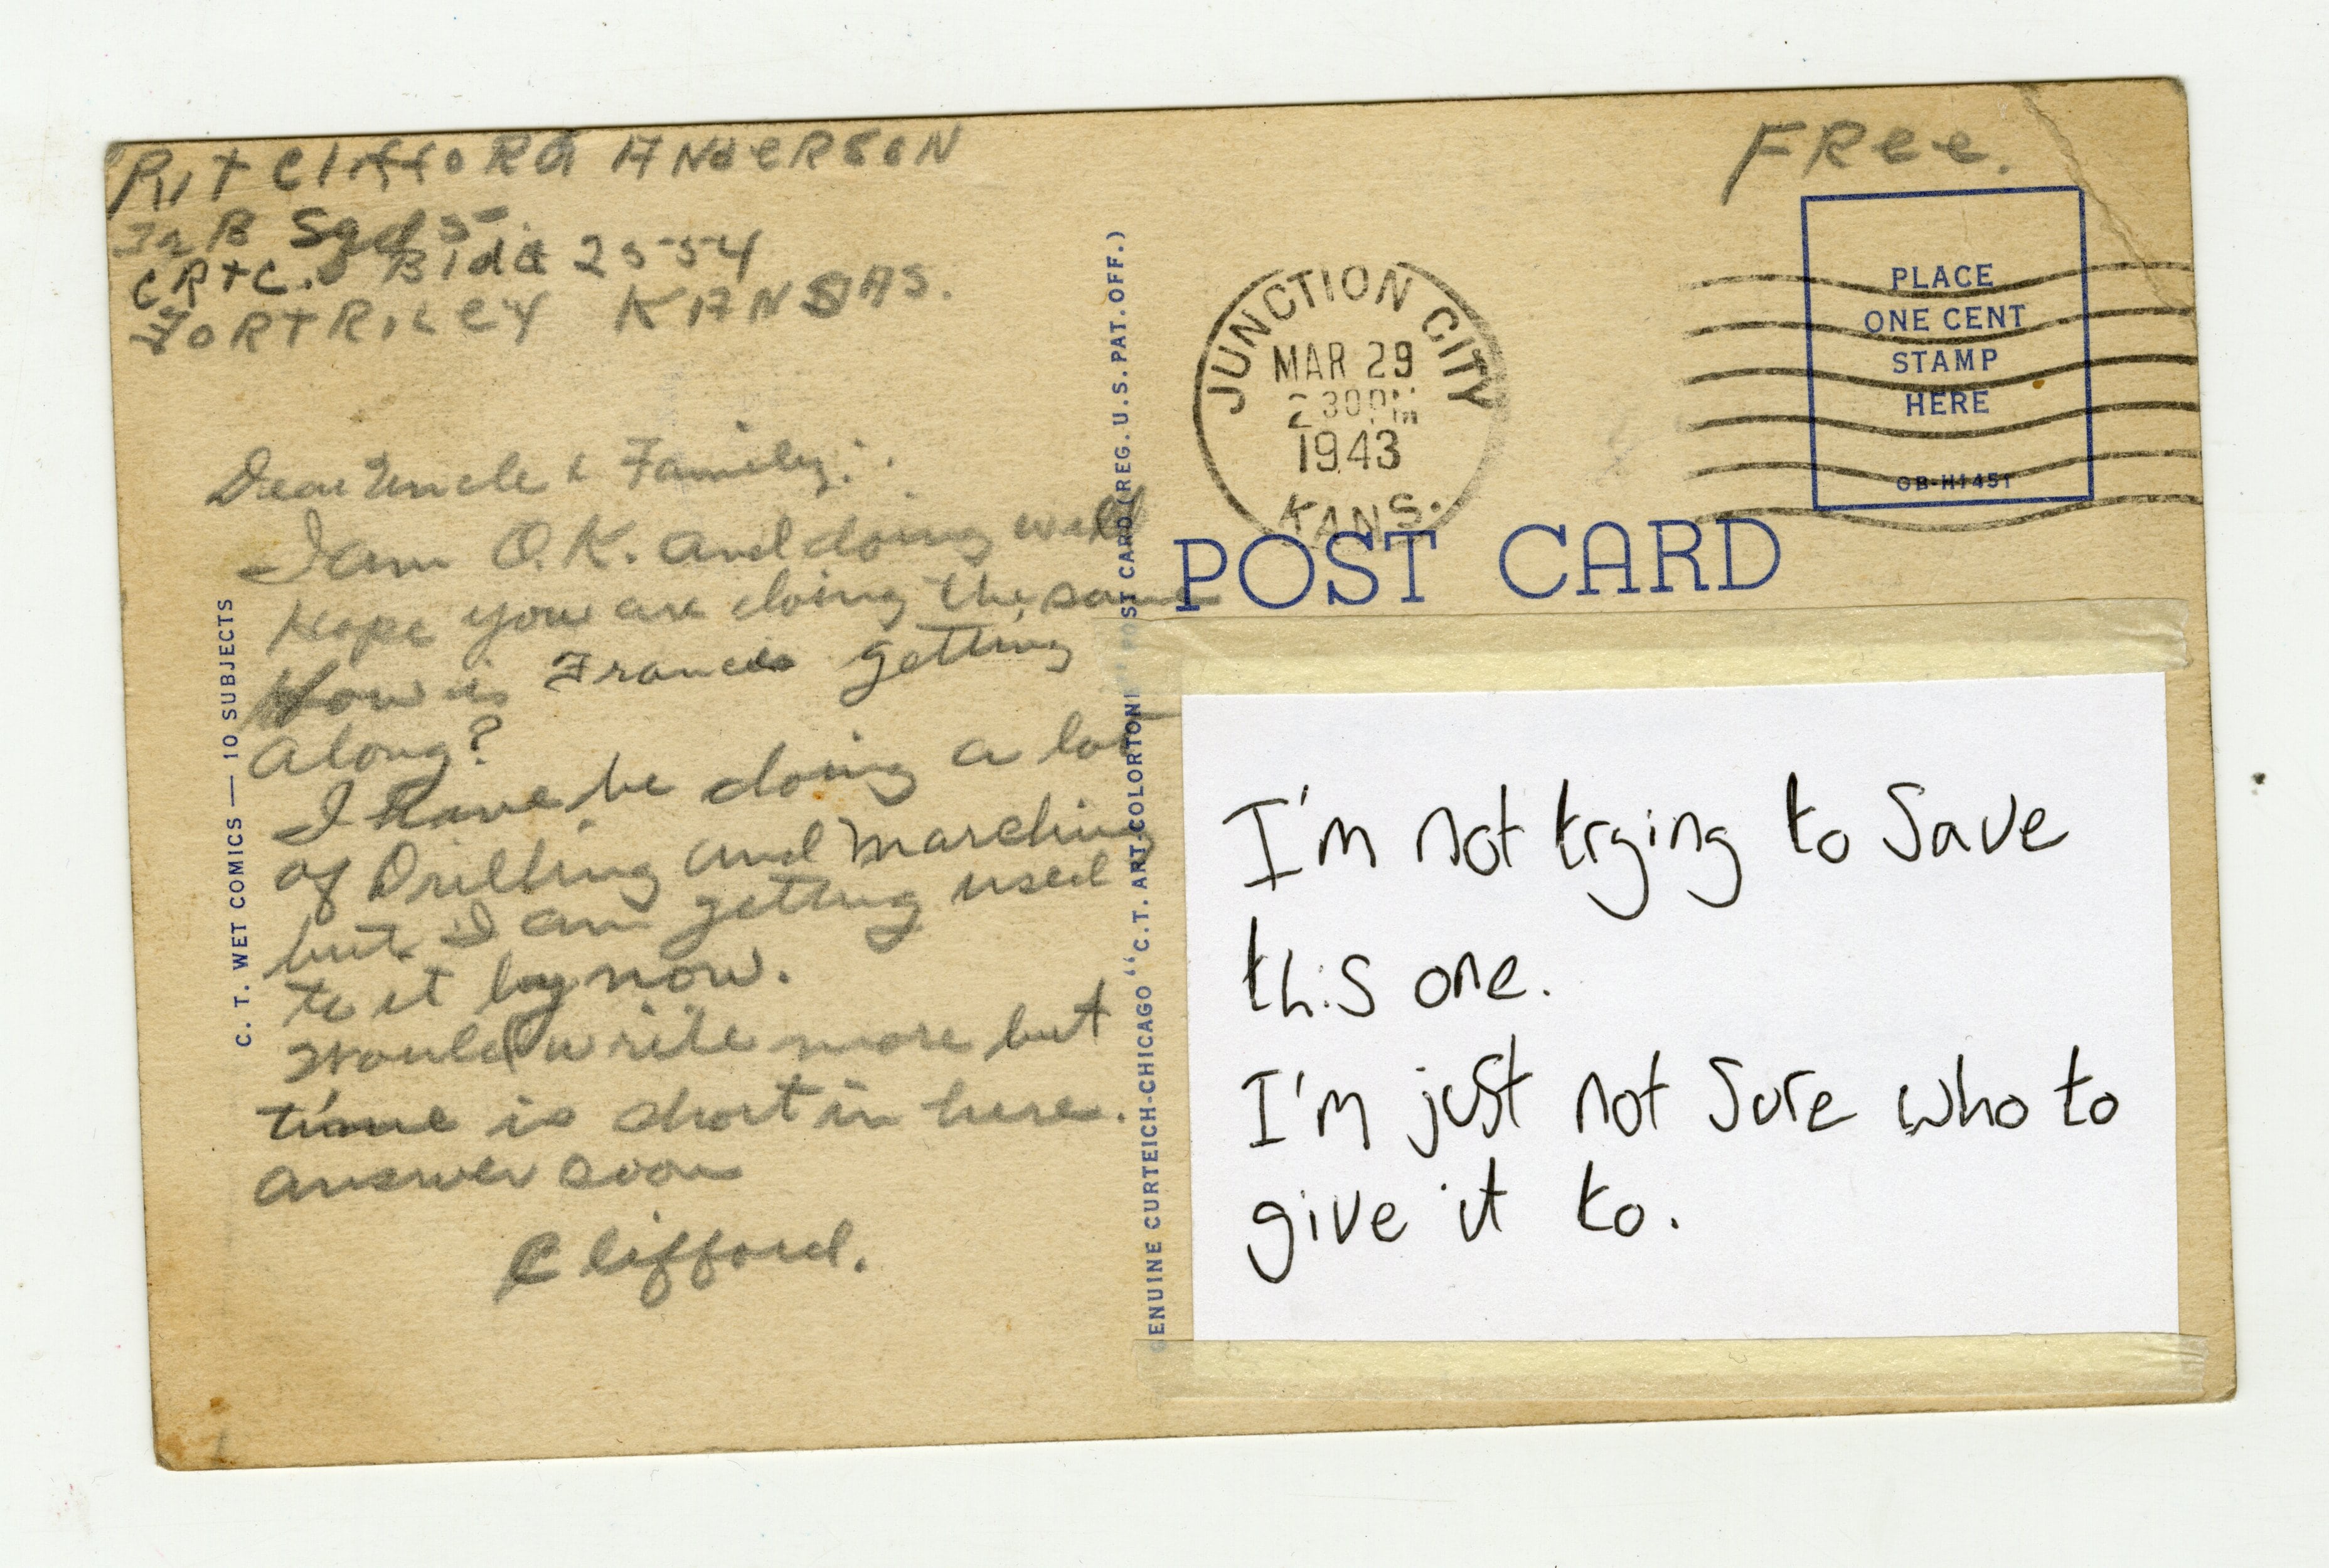 Pvt Clifford Anderson
B Sqd 5
CRTC. Bldg 2554
Fort Riley Kansas.
Free.
PLACE
ONE CENT
STAMP
HERE
OB-H1451
JUNCTION CITY
MAR 29
2 30 PM
1943
KANS.
POST CARD
C. T. WET COMICS — 10 SUBJECTS
Dear Uncle & Family:
I am O.K. and doing well
Hope you are doing the same
How is Francis getting
along?
I have be doing a lot
of Drilling and marching
but I am getting used
to it by now.
Would write more but
time is short in here.
answer soon
Clifford.
GENUINE CURTEICH-CHICAGO "C. T. ART-COLORTONE" POST CARD (REG. U.S. PAT. OFF.)
I'm not trying to save
this one.
I'm just not sure who to
give it to.